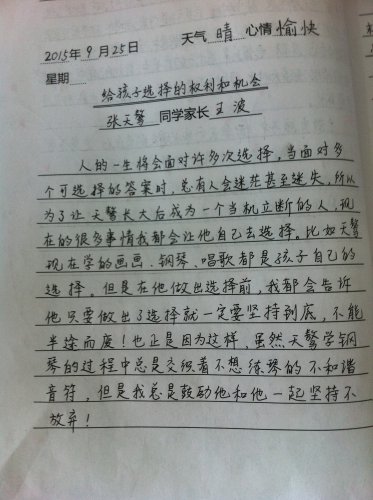 2015年9月25日 天气 晴 心情 愉快
星期
给孩子选择的权利和机会
张天骜 同学家长 王波
人的一生将会面对许多次选择，当面对多
个可选择的答案时，总有人会迷茫甚至迷失，所以
为了让天骜长大后成为一个当机立断的人，现
在的很多事情我都会让他自己去选择。比如天骜
现在学的画画、钢琴、唱歌都是孩子自己的
选择。但是在他做出选择前，我都会告诉
他只要做出了选择就一定要坚持到底，不能
半途而废！也正是因为这样，虽然天骜学钢
琴的过程中总是交织着不想练琴的不和谐
音符，但是我总是鼓励他和他一起坚持不
放弃！